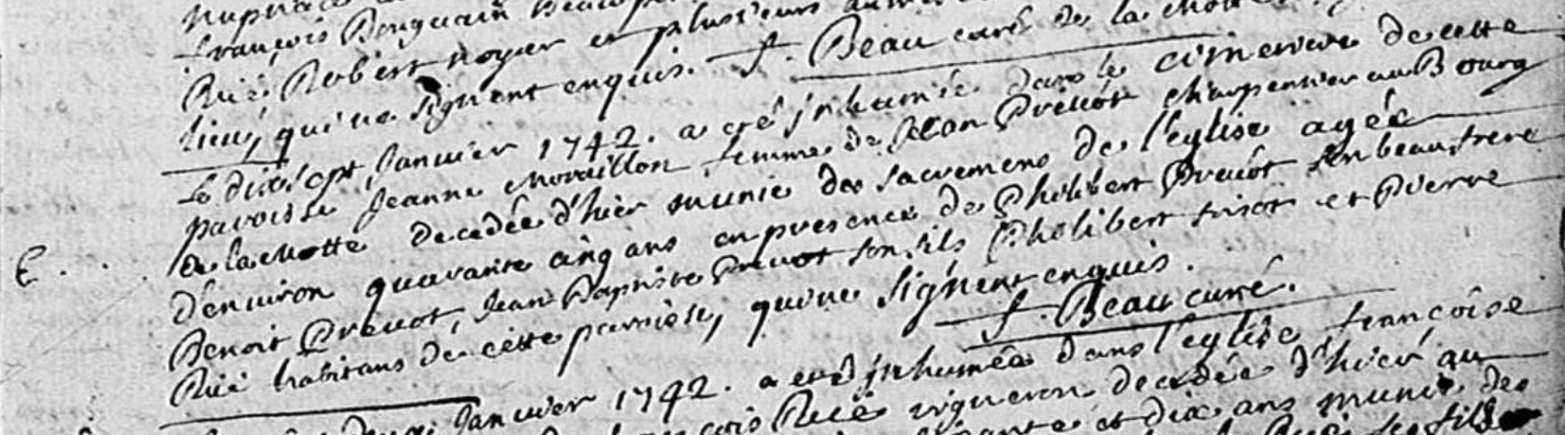 françois Bouquain
Rué, Robert noyer et plusieurs
lieu, qui ne signent enquis. f. Beau curé de la Motte
Le dixsept Janvier 1742. a eté inhumée dans le cimetiere de cette
paroisse Jeanne Moraillon femme de Jean Prevôt charpentier au Bourg
de la Motte decedée d'hier munie des sacremens de l'église agée
d'environ quarante cinq ans en presence de Philibert Prevôt son beaufrere
Benoit Prevot, Jean Baptiste Prevot son fils Philibert et Pierre
Rué habitans de cette paroisse, qui ne signent enquis.
f. Beau curé.
Janvier 1742. a eté inhumée dans l'eglise françoise
Rué vigneron decedée d'hier au
et dix ans munie des